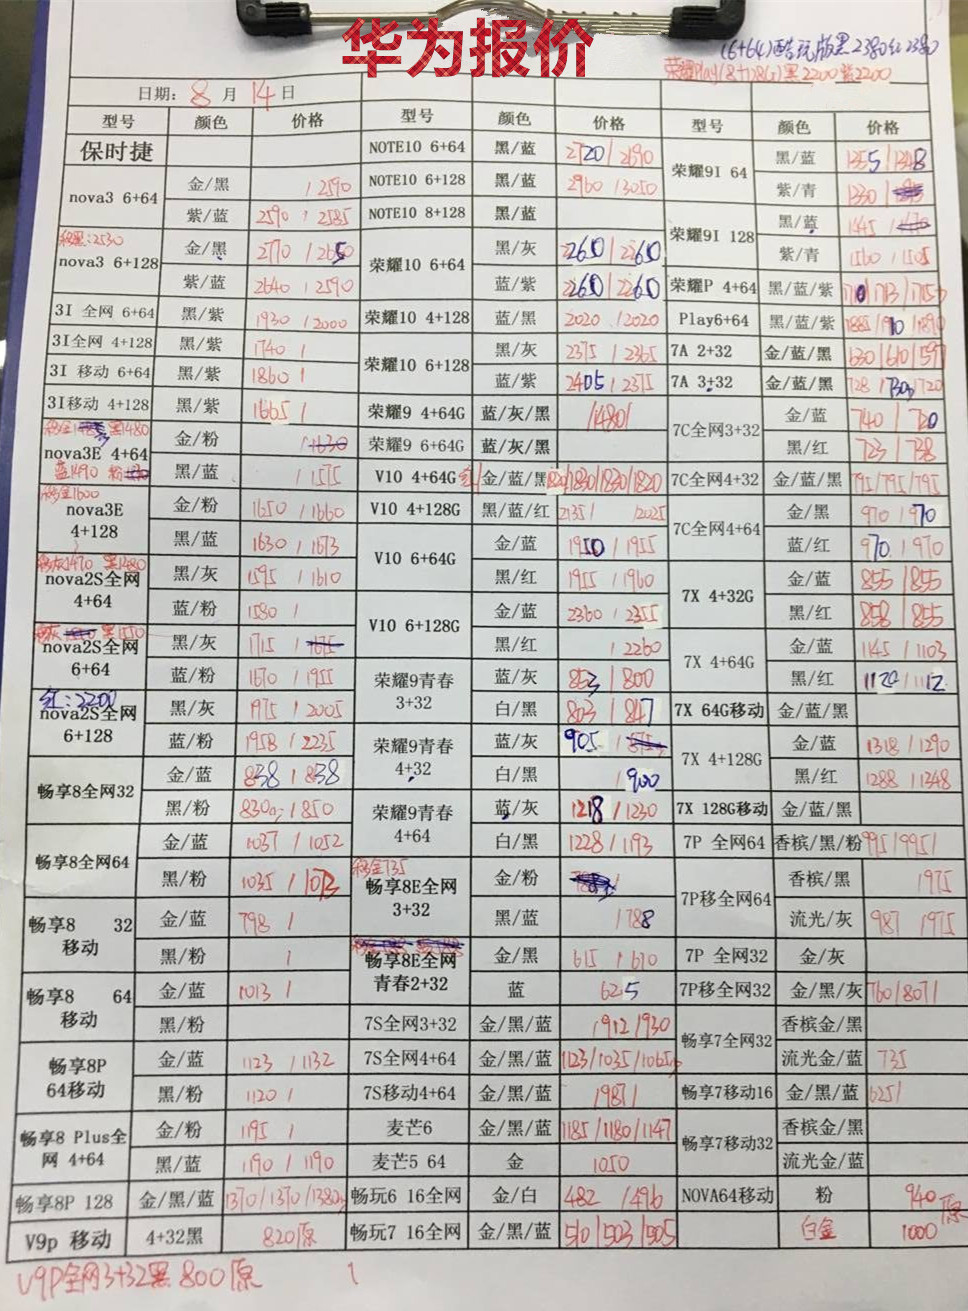 华为报价
(6+64)酷玩版黑2380红2380
荣耀Play(8+128G)黑2200紫2200
日期: 8 月 14 日
型号 颜色 价格 型号 颜色 价格 型号 颜色 价格
保时捷 NOTE10 6+64 黑/蓝 2720/2690 荣耀9I 64 黑/蓝 1355/1348
nova3 6+64 金/黑 /2590 NOTE10 6+128 黑/蓝 2960/3050 紫/青 1330/
紫/蓝 2590/2585 NOTE10 8+128 黑/蓝 荣耀9I 128 黑/蓝 1445/
nova3 6+128 金/黑 2770/2650 荣耀10 6+64 黑/灰 2260/2260 紫/青 1560/1505
紫/蓝 2640/2590 蓝/紫 2260/2260 荣耀P 4+64 黑/蓝/紫
3I 全网 6+64 黑/紫 1930/2000 荣耀10 4+128 蓝/黑 2020/2020 Play6+64 黑/蓝/紫
3I全网 4+128 黑/紫 1740/ 荣耀10 6+128 黑/灰 2375/2365 7A 2+32 金/蓝/黑 630/610/597
3I 移动 6+64 黑/紫 1860/ 蓝/紫 2405/2375 7A 3+32 金/蓝/黑 728/730/720
3I移动 4+128 黑/紫 1665/ 荣耀9 4+64G 蓝/灰/黑 /1480/ 7C全网3+32 金/蓝 740/720
nova3E 4+64 金/粉 荣耀9 6+64G 蓝/灰/黑 黑/红 723/738
黑/蓝 /1575 V10 4+64G 红/金/蓝/黑 1820/1830/1830/1820 7C全网4+32 金/蓝/黑 795/795/795
移金1600
nova3E 4+128 金/粉 1650/1660 V10 4+128G 黑/蓝/红 2135/ /2025 7C全网4+64 金/黑 970/970
黑/蓝 1630/1673 V10 6+64G 金/蓝 1950/1955 蓝/红 970/970
nova2S全网 4+64 黑/灰 1595/1610 黑/红 1955/1960 7X 4+32G 金/蓝 855/855
蓝/粉 1580/ V10 6+128G 金/蓝 2360/2355 黑/红 858/855
nova2S全网 6+64 黑/灰 1715/ 黑/红 /2260 7X 4+64G 金/蓝 1145/1103
蓝/粉 1670/1955 荣耀9青春 3+32 蓝/灰 853/800 黑/红 1120/1112
红:2200
nova2S全网 6+128 黑/灰 1975/2005 白/黑 803/847 7X 64G移动 金/蓝/黑
蓝/粉 1958/2235 荣耀9青春 4+32 蓝/灰 905/ 7X 4+128G 金/蓝 1318/1290
畅享8全网32 金/蓝 838/838 白/黑 /900 黑/红 1288/1248
黑/粉 830/850 荣耀9青春 4+64 蓝/灰 1218/1230 7X 128G移动 金/蓝/黑
畅享8全网64 金/蓝 1037/1052 白/黑 1228/1193 7P 全网64 香槟/黑/粉 995/995/
黑/粉 1035/1073 移金735 畅享8E全网 3+32 金/粉 7P移全网64 香槟/黑 /975
畅享8 32 移动 金/蓝 798/ 黑/蓝 /788 流光/灰 987/975
黑/粉 / 畅享8E全网 青春2+32 金/黑 615/610 7P 全网32 金/灰
畅享8 64 移动 金/蓝 1013/ 蓝 625 7P移全网32 金/黑/灰 760/807/
黑/粉 7S全网3+32 金/黑/蓝 /912/930 畅享7全网32 香槟金/黑
畅享8P 64移动 金/蓝 1123/1132 7S全网4+64 金/黑/蓝 1123/1035/1065 流光金/蓝 735
黑/粉 1120/ 7S移动4+64 金/黑/蓝 /987/ 畅享7移动16 金/黑/蓝 625/
畅享8 Plus全网 4+64 金/粉 1195/ 麦芒6 金/黑/蓝 1185/1180/1147 畅享7移动32 香槟金/黑
黑/蓝 1190/1190 麦芒5 64 金 1050 流光金/蓝
畅享8P 128 金/黑/蓝 1370/1370/1380 畅玩6 16全网 金/白 482/496 NOVA64移动 粉 940原
V9p 移动 4+32黑 820原 畅玩7 16全网 金/黑/蓝 510/503/505 白金 1000
V9P全网3+32黑 800原